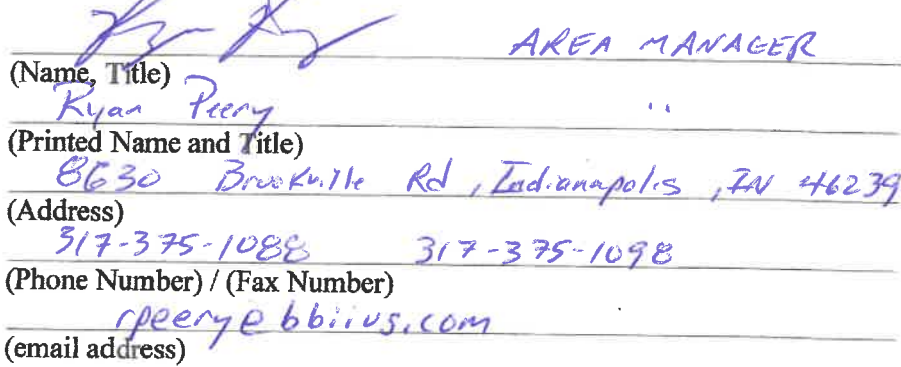 AREA MANAGER
(Name, Title)
Ryan Peery "
(Printed Name and Title)
8630 Brookville Rd, Indianapolis, IN 46239
(Address)
317-375-1088 317-375-1098
(Phone Number) / (Fax Number)
rpeery@bbiius.com
(email address)